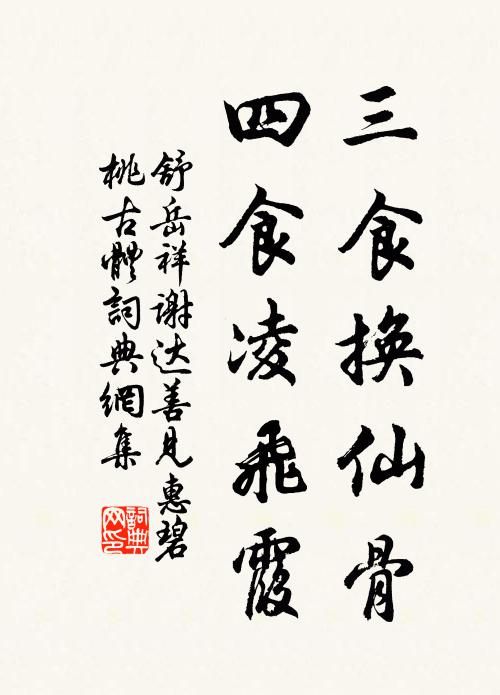 三食换仙骨
四食凌飛霞
舒岳祥谢达善見惠碧
桃古體詞典網集
詞典
网印